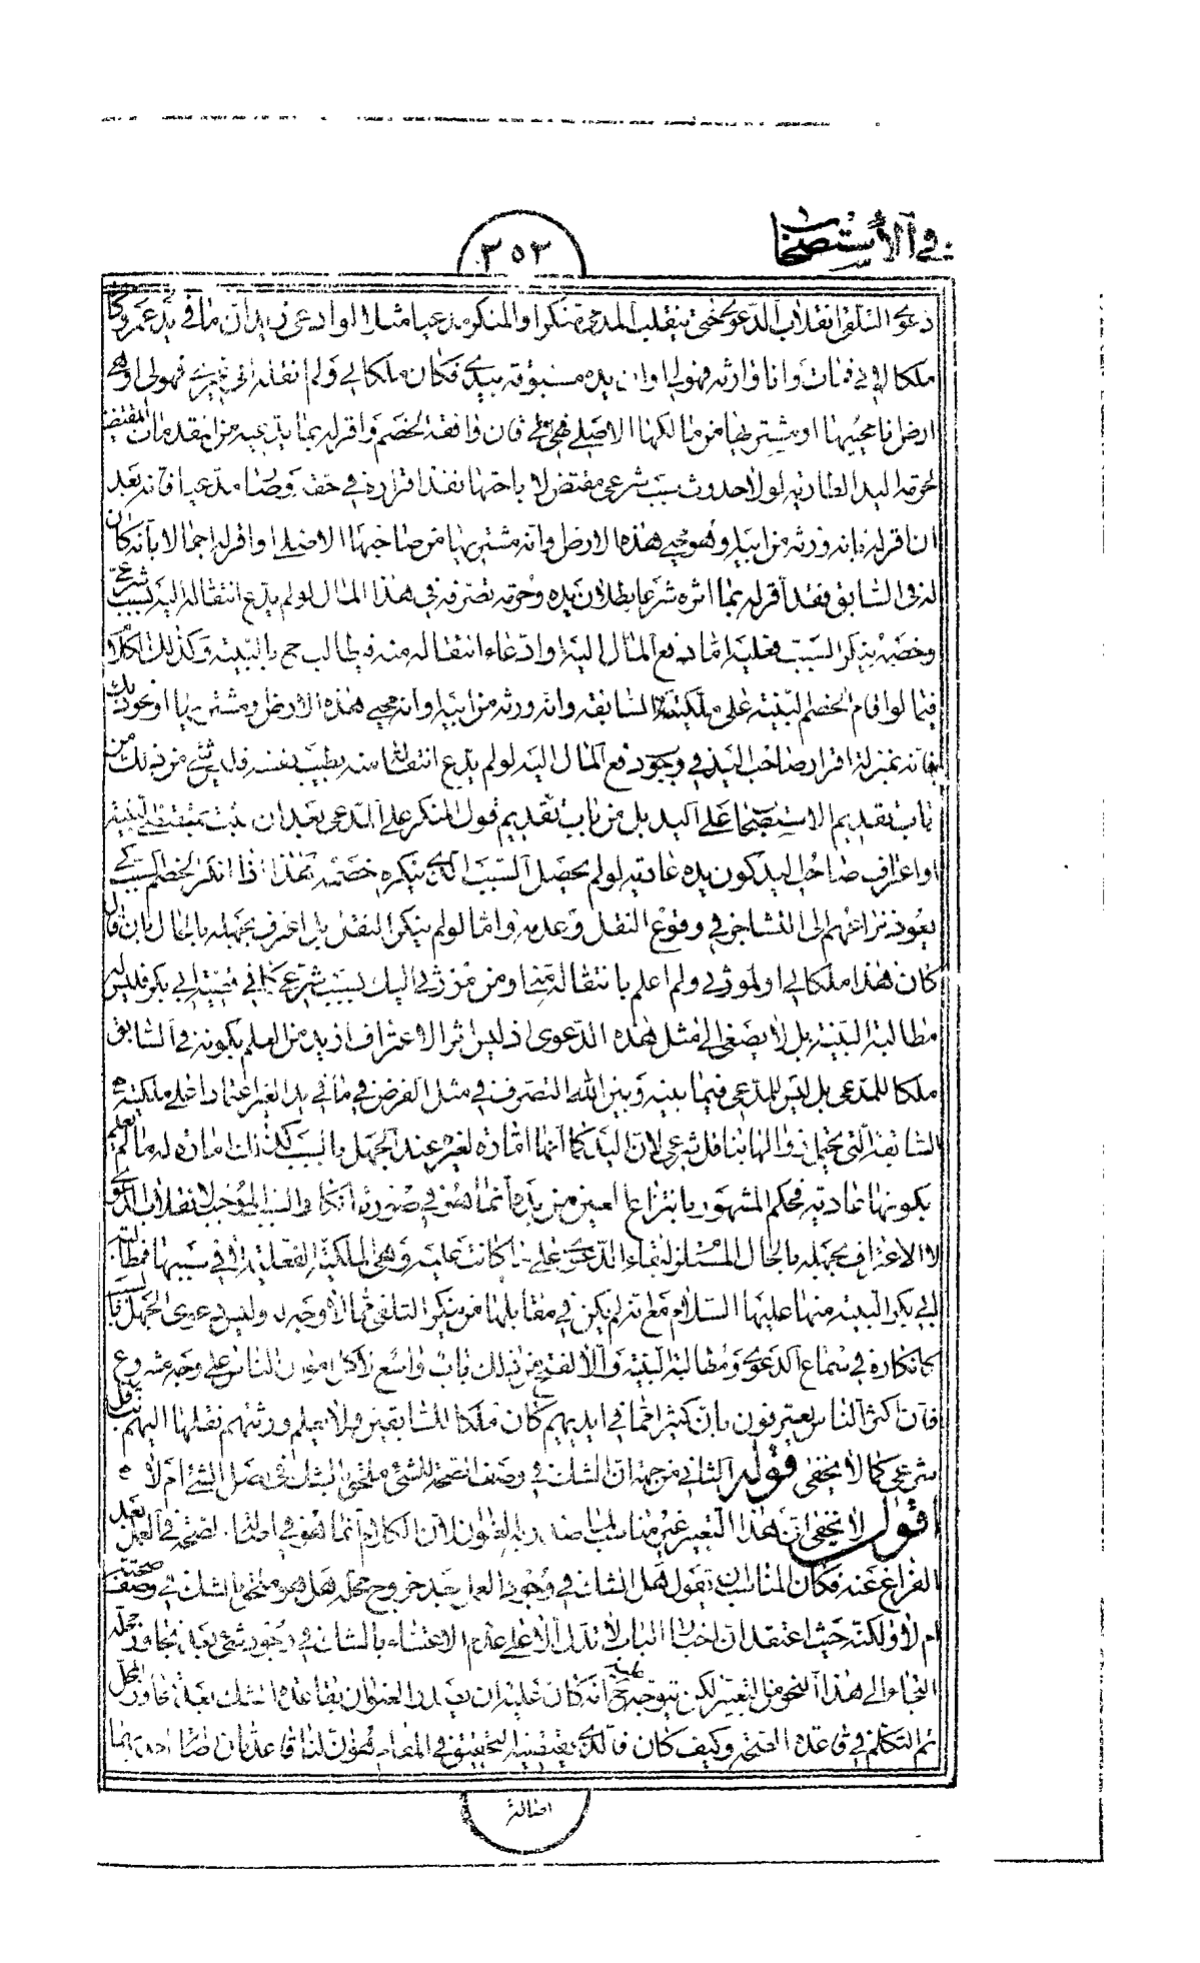 في الاستصحاب
٣٥٣
دعوى التلقي انقلاب الدعوى حتى ينقلب المدعي منكرا والمنكر مدعيا مثلا لو ادعى زيد ان ما في يد عمرو كان
ملكا لابي فمات وانا وارثه فهو لي او ان يده مسبوقة بيدي فكان ملكا لي ولم انقله الى غيري فهو لي او هي
ارض انا محييها او مشتريها من مالكها الاصلي فهي لي فان وافقه الخصم واقر له بما يدعيه من المقدمات المقتضية
لحرمة اليد الطارية لولا حدوث سبب شرعي مقتض لاباحتها نفذ اقراره في حقه وصار مدعيا فانه بعد
ان اقر له بانه ورثه من ابيه وهو محيي هذه الارض وانه مشتريها من صاحبها الاصلي او اقر له اجمالا بانه كان
له في السابق فقد اقر له بما اثره شرعا بطلان يده وحرمة تصرفه في هذا المال لو لم يدع انتقاله اليه بسبب شرعي
وخصمه ينكر السبب فعليه اما دفع المال اليه او ادعاء انتقاله منه فيطالب ح بالبينة وكذلك الكلام
فيما لو اقام الخصم البينة على ملكيته السابقة وانه ورثه من ابيه او انه محيي هذه الارض ومشتريها او نحو ذلك
فانه بمنزلة اقرار صاحب اليد في وجوب دفع المال اليه لو لم يدع انتقاله منه بطيب نفسه فليس شئ من ذلك من
باب تقديم الاستصحاب على اليد بل من باب تقديم قول المنكر على المدعي بعد ان ثبت بمقتضى البينة
او اعتراف صاحب اليد كون يده عادية لو لم يحصل السبب الذي ينكره خصمه هذا اذا انكر الخصم السبب كي
يعود نزاعهم الى التشاجر في وقوع النقل وعدمه واما لو لم ينكر النقل بل اعترف بجهله بالحال بان قال
كان هذا ملكا لي او لمورثي ولم اعلم بانتقاله مني او من مورثي اليك بسبب شرعي كما في قضية ابي بكر فليس له
مطالبة البينة بل لا يصغى الى مثل هذه الدعوى اذ ليس اثر الاعتراف ازيد من العلم بكونه في السابق
ملكا للمدعي بل ليس للمدعي فيما بينه وبين الله التصرف في مثل الفرض في ما في يد الغير اعتمادا على ملكيته
السابقة التي يحتمل زوالها بناقل شرعي لان اليد كما انها امارة لغيره عند الجهل بالسبب كذلك امارة له ما لم يعلم
بكونها عادية فحكم المشهور بانتزاع العين من يده انما هو في صورة انكار السبب الموجب لانقلاب الدعوى
لا الاعتراف بجهله بالحال المستلزم لبقاء الدعوى على ما كانت عليه وهي الملكية الفعلية لا في سببها فمطالبة
ابي بكر البينة منها عليها السلام مع انه لم يكن في مقابلها من ينكر التلقي مما لا وجه له وليس دعوى الجهل بالسبب
كانكاره في سماع الدعوى ومطالبة البينة والا لفتح من ذلك باب واسع لاكل اموال الناس على وجه مشروع
فان اكثر الناس يعترفون بان كثيرا مما في ايديهم كان ملكا للسابقين ولا يعلم ورثتهم نقلها اليهم بناقل
شرعي كما لا يخفى قوله الثاني من جهة ان الشك في وصف الصحة للشئ ملحق بالشك في اصل الشئ ام لا
اقول لا يخفى ان هذا التعبير غير مناسب لما صدر به العنوان لان الكلام انما هو في اصالة الصحة في العمل بعد
الفراغ عنه فكان المناسب ان يقول هل الشك في وجود العمل بعد خروج محله هل هو ملحق بالشك في وصف صحته
ام لا ولكنه حيث اعتقد ان اخبار الباب لا تدل الا على عدم الاعتناء بالشك في وجود شئ بعد تجاوز محله
التجاء الى هذا النحو من التعبير لكن يتوجه عليه ح انه كان عليه ان يصدر العنوان بقاعدة الشك بعد تجاوز المحل
ثم التكلم في قاعدة الصحة وكيف كان فالذي يقتضيه التحقيق في المقام هو ان لنا قاعدتان احدهما
اصالة